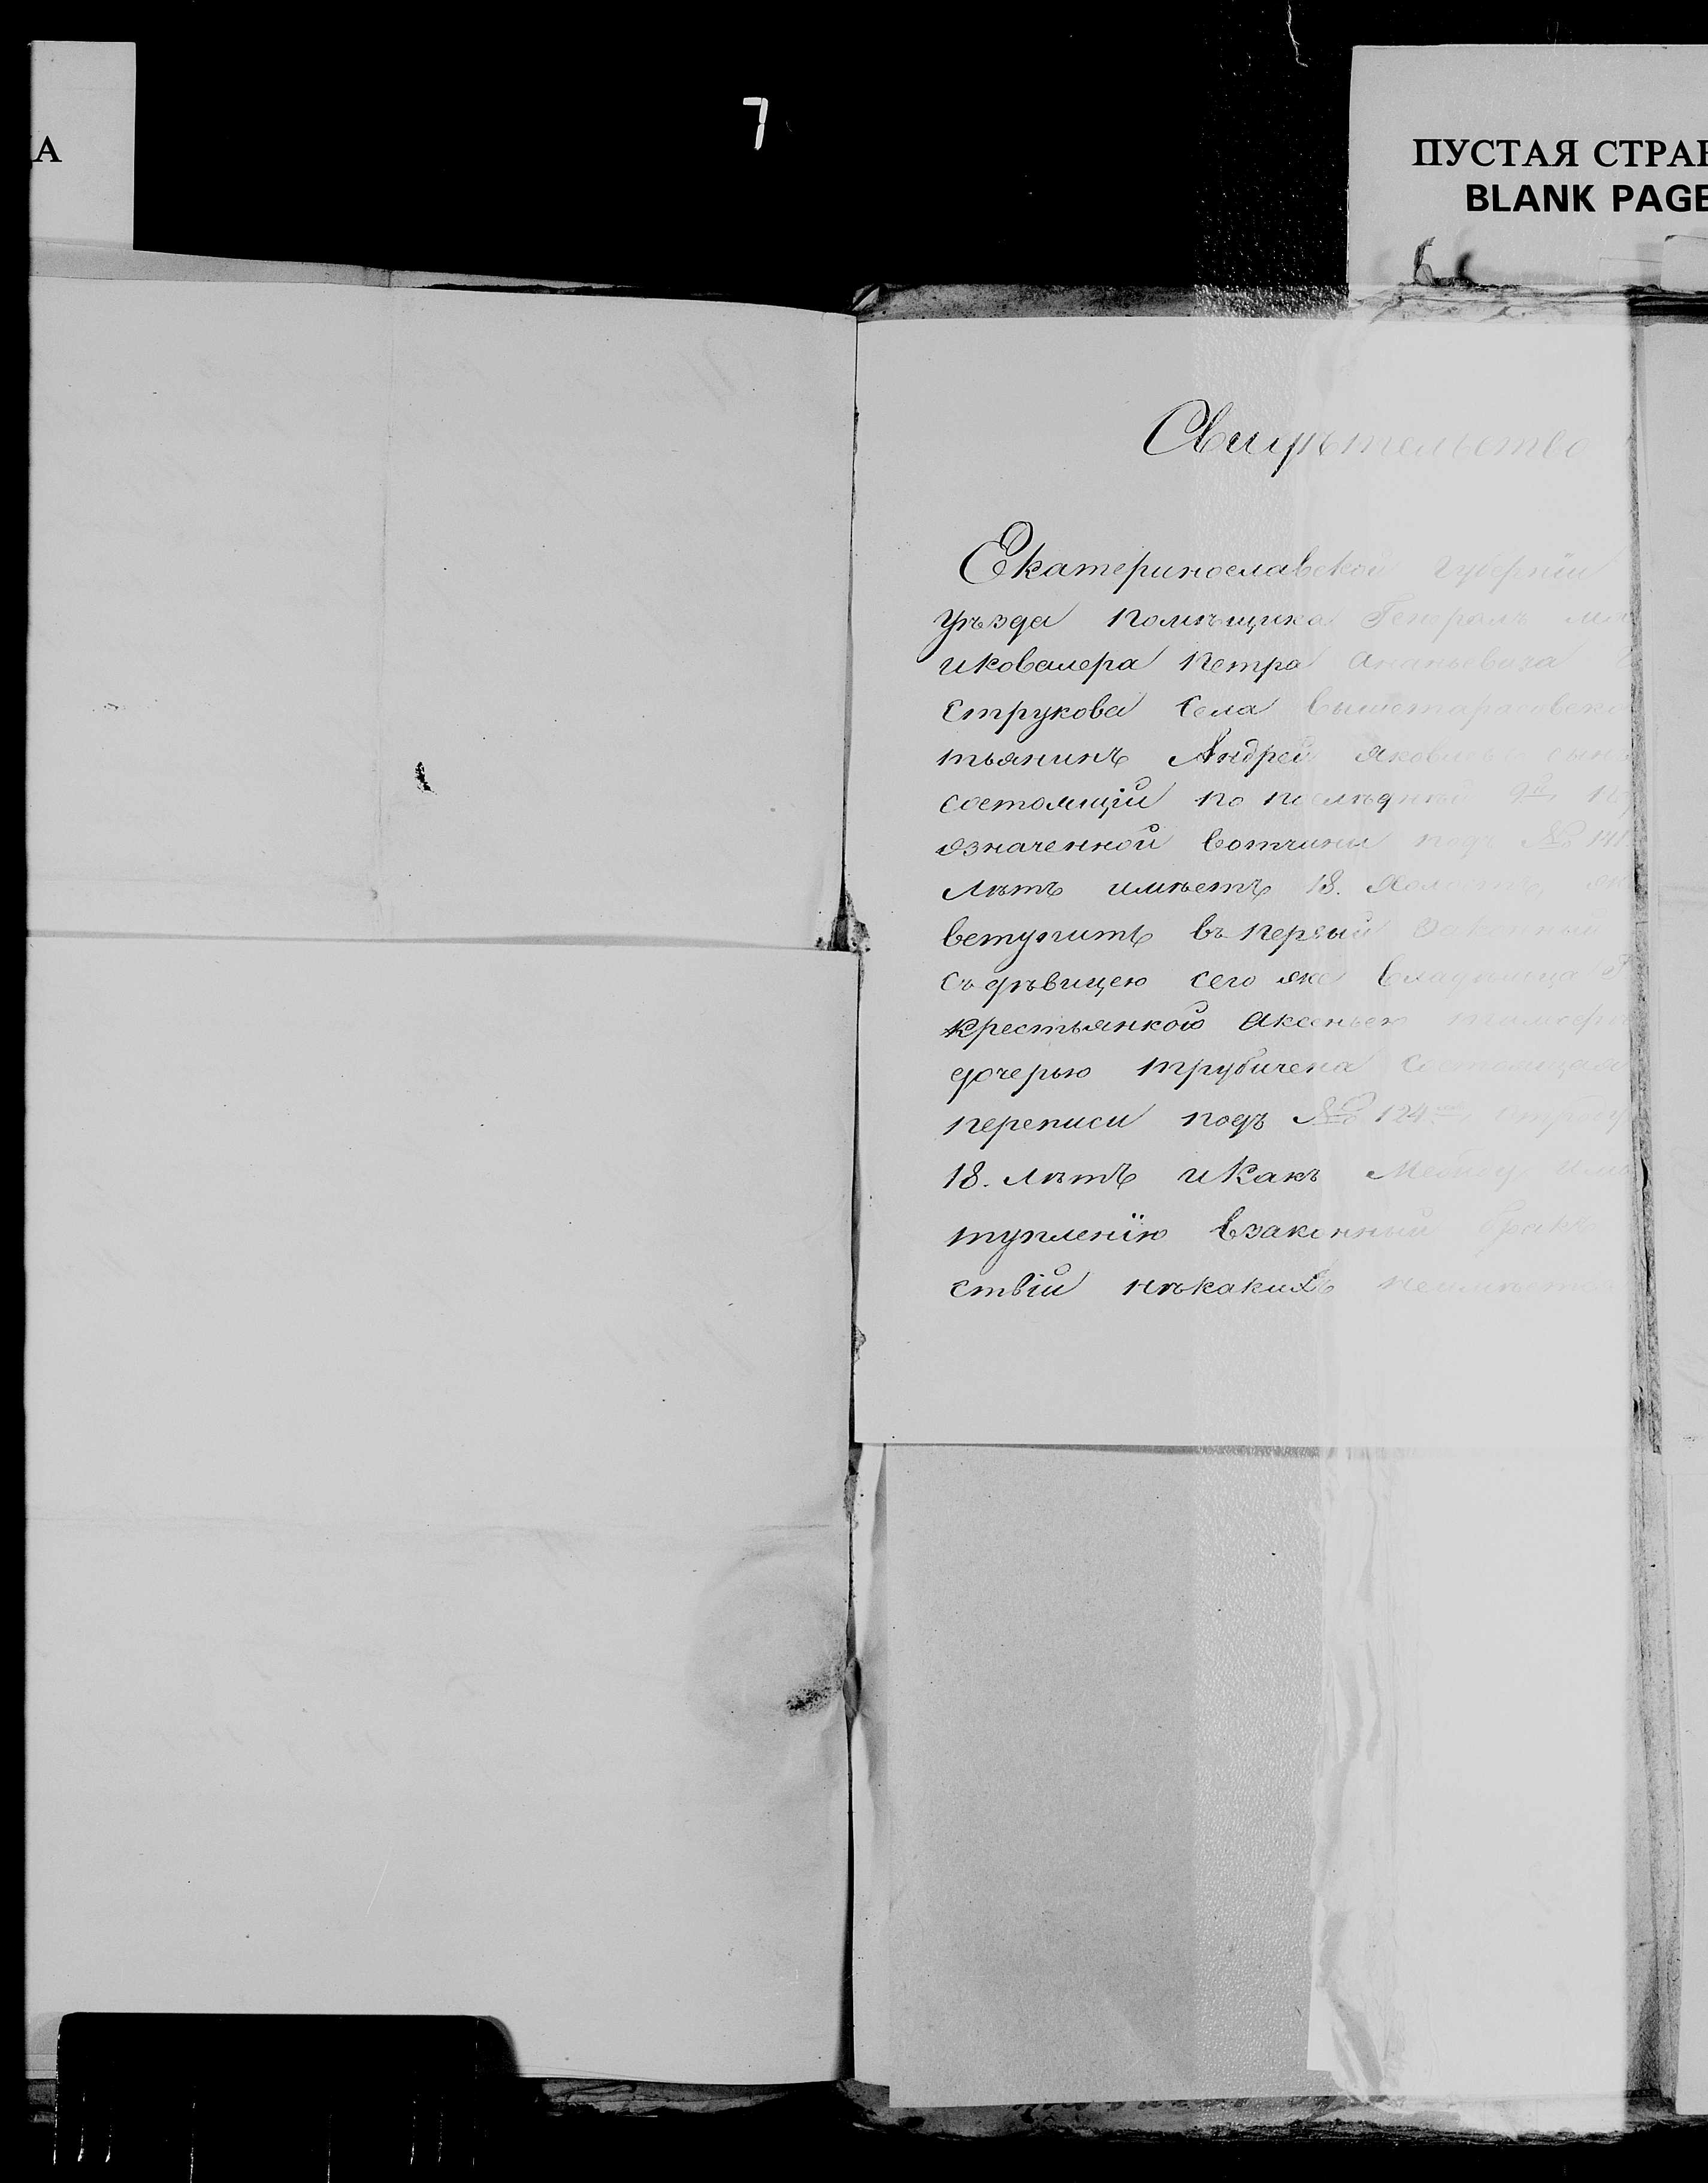 А
7
ПУСТАЯ СТРАН
BLANK PAGE
Свидѣтельство
Екатеринославской губерніи
уѣзда помѣщика Генералъ
икавалера Петра Ананьевича
Струкова Села вышетарасовскъ
тьянинъ Андрей яковлевъ сынъ
состоящій по послѣдней 9й
означенной вотчины подъ № 141
лѣтъ имѣетъ 18. Холостъ
вступить въ первый Законный
съ дѣвицею сего же владѣльца
крестьянкою Аксеньею
дочерью трубичена Состоящая
переписи подъ № 124
18. лѣтъ икакъ Между
тупленïю взаконный бракъ
ствій нѣкакихъ неимѣется